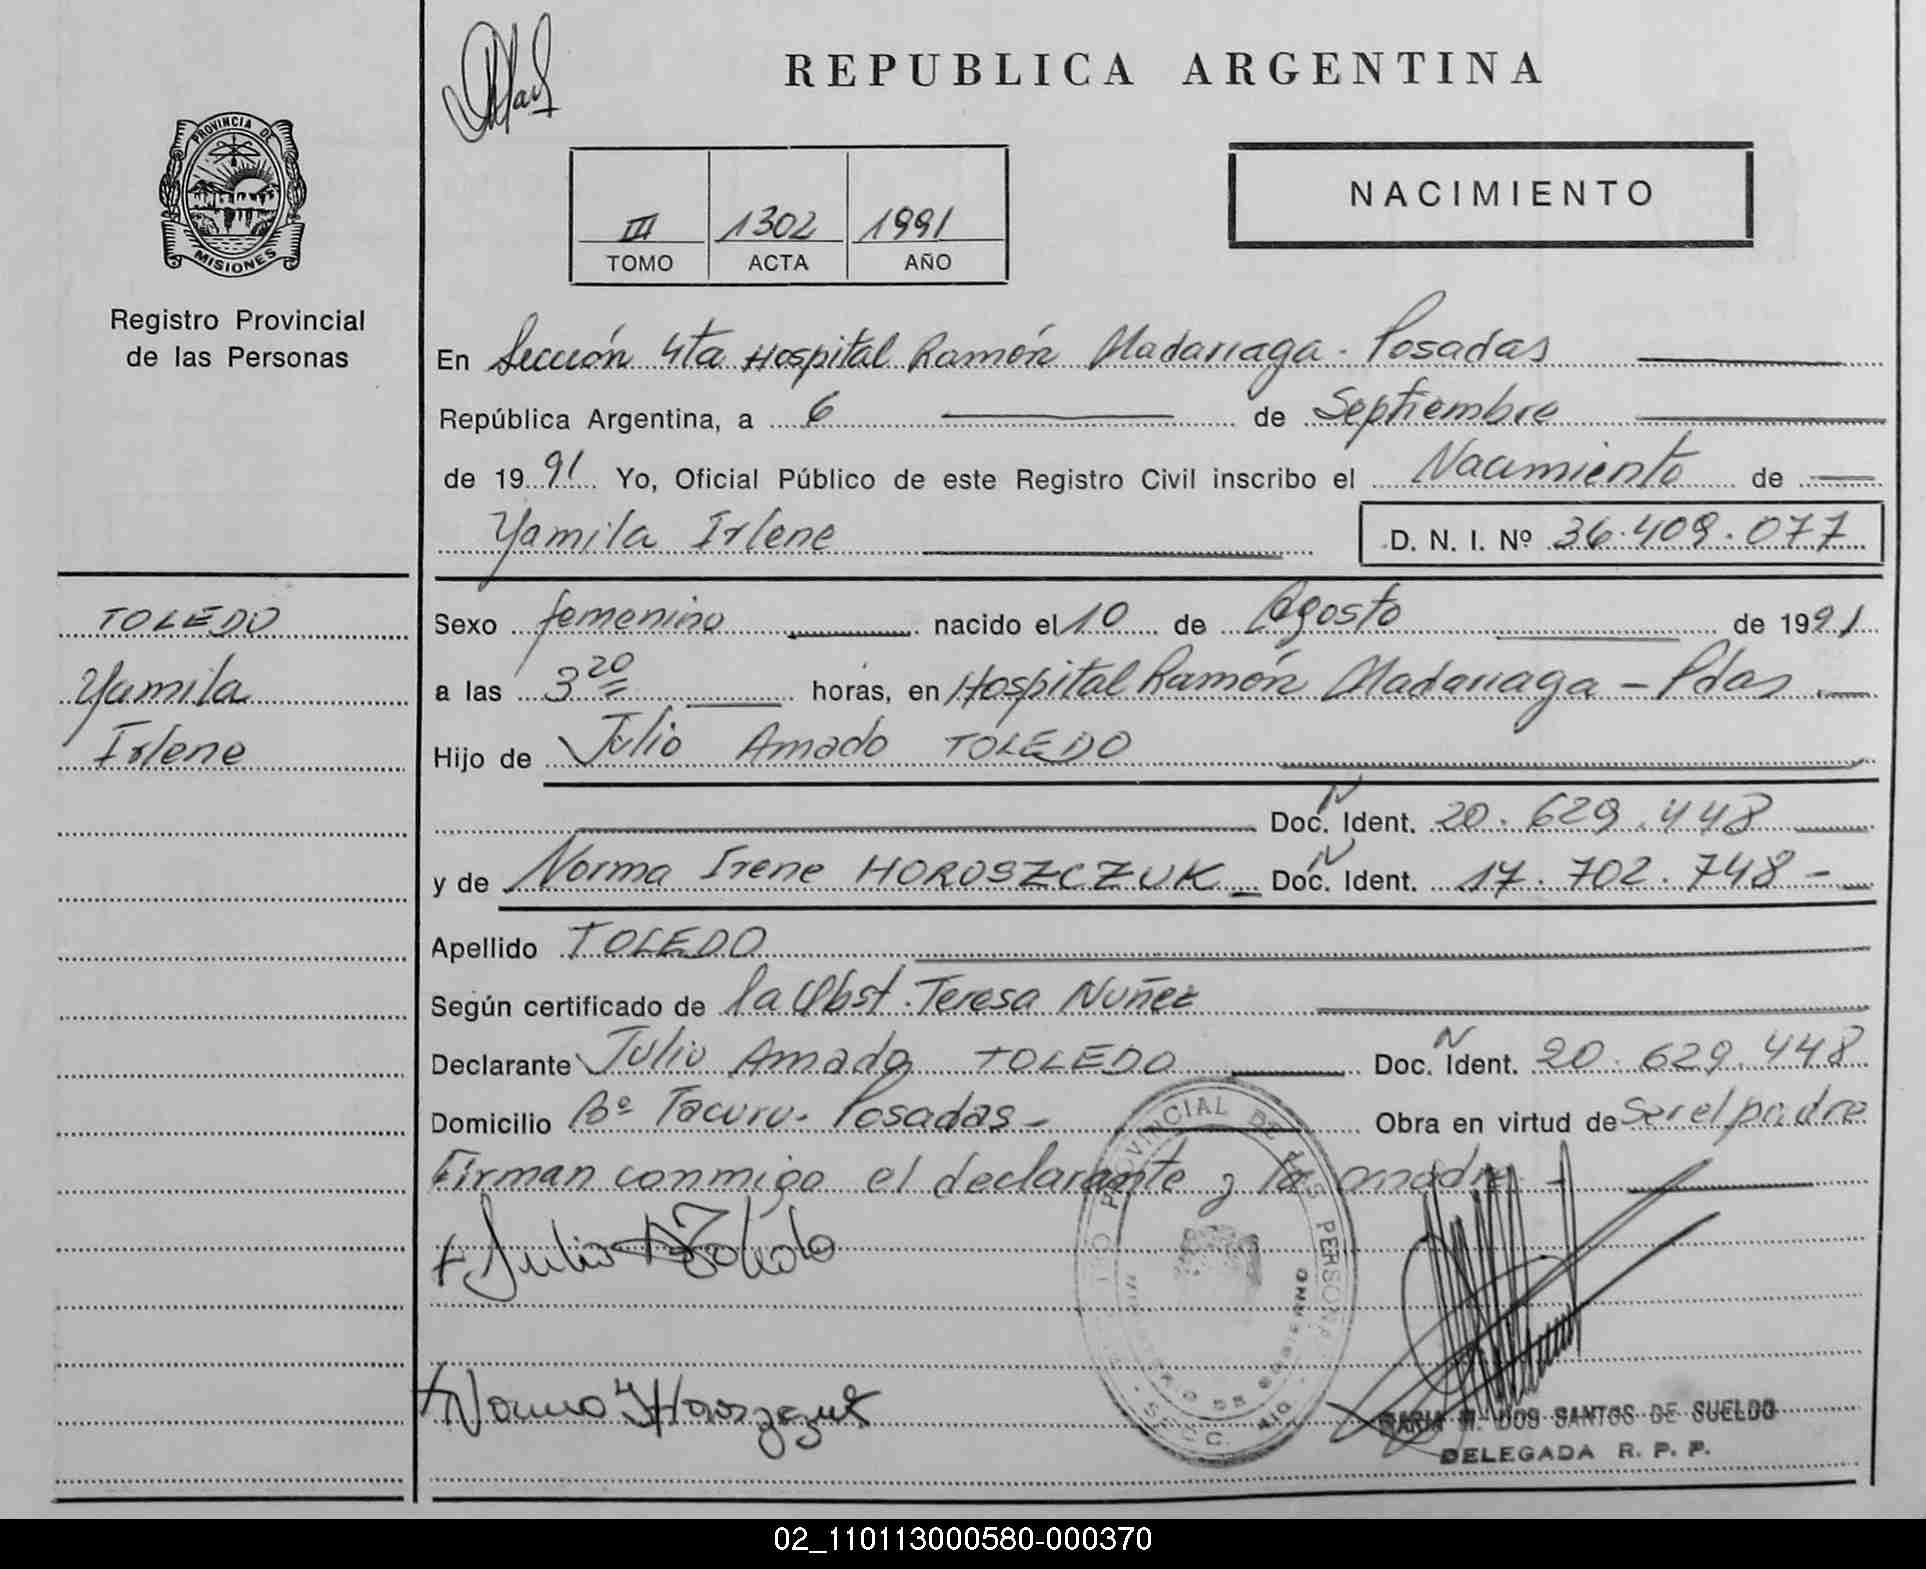 REPUBLICA ARGENTINA
PROVINCIA DE
MISIONES
Registro Provincial
de las Personas
III 1302 1991
TOMO ACTA AÑO
NACIMIENTO
En Sección 4ta Hospital Ramón Madariaga - Posadas
República Argentina, a 6 de Septiembre
de 1991 Yo, Oficial Público de este Registro Civil inscribo el Nacimiento de
Yamila Irlene D. N. I. Nº 36.409.077
TOLEDO
Yamila
Irlene
Sexo femenino nacido el 10 de Agosto de 1991
a las 3 20 horas, en Hospital Ramón Madariaga - Pdas.
Hijo de Julio Amado TOLEDO
Doc. N Ident. 20.629.448
y de Norma Irene HOROSZCZUK Doc. N Ident. 17.702.748 -
Apellido TOLEDO
Según certificado de la Obst. Teresa Nuñez
Declarante Julio Amado TOLEDO Doc. N Ident. 20.629.448
Domicilio Bº Tacuru - Posadas - Obra en virtud de Ser el padre
Firman conmigo el declarante y la madre -
Julio A Toledo
PROVINCIAL DE LAS PERSONAS
DE GOBIERNO
SECC.
MARIA M. DOS SANTOS DE SUELDO
DELEGADA R. P. P.
02_110113000580-000370